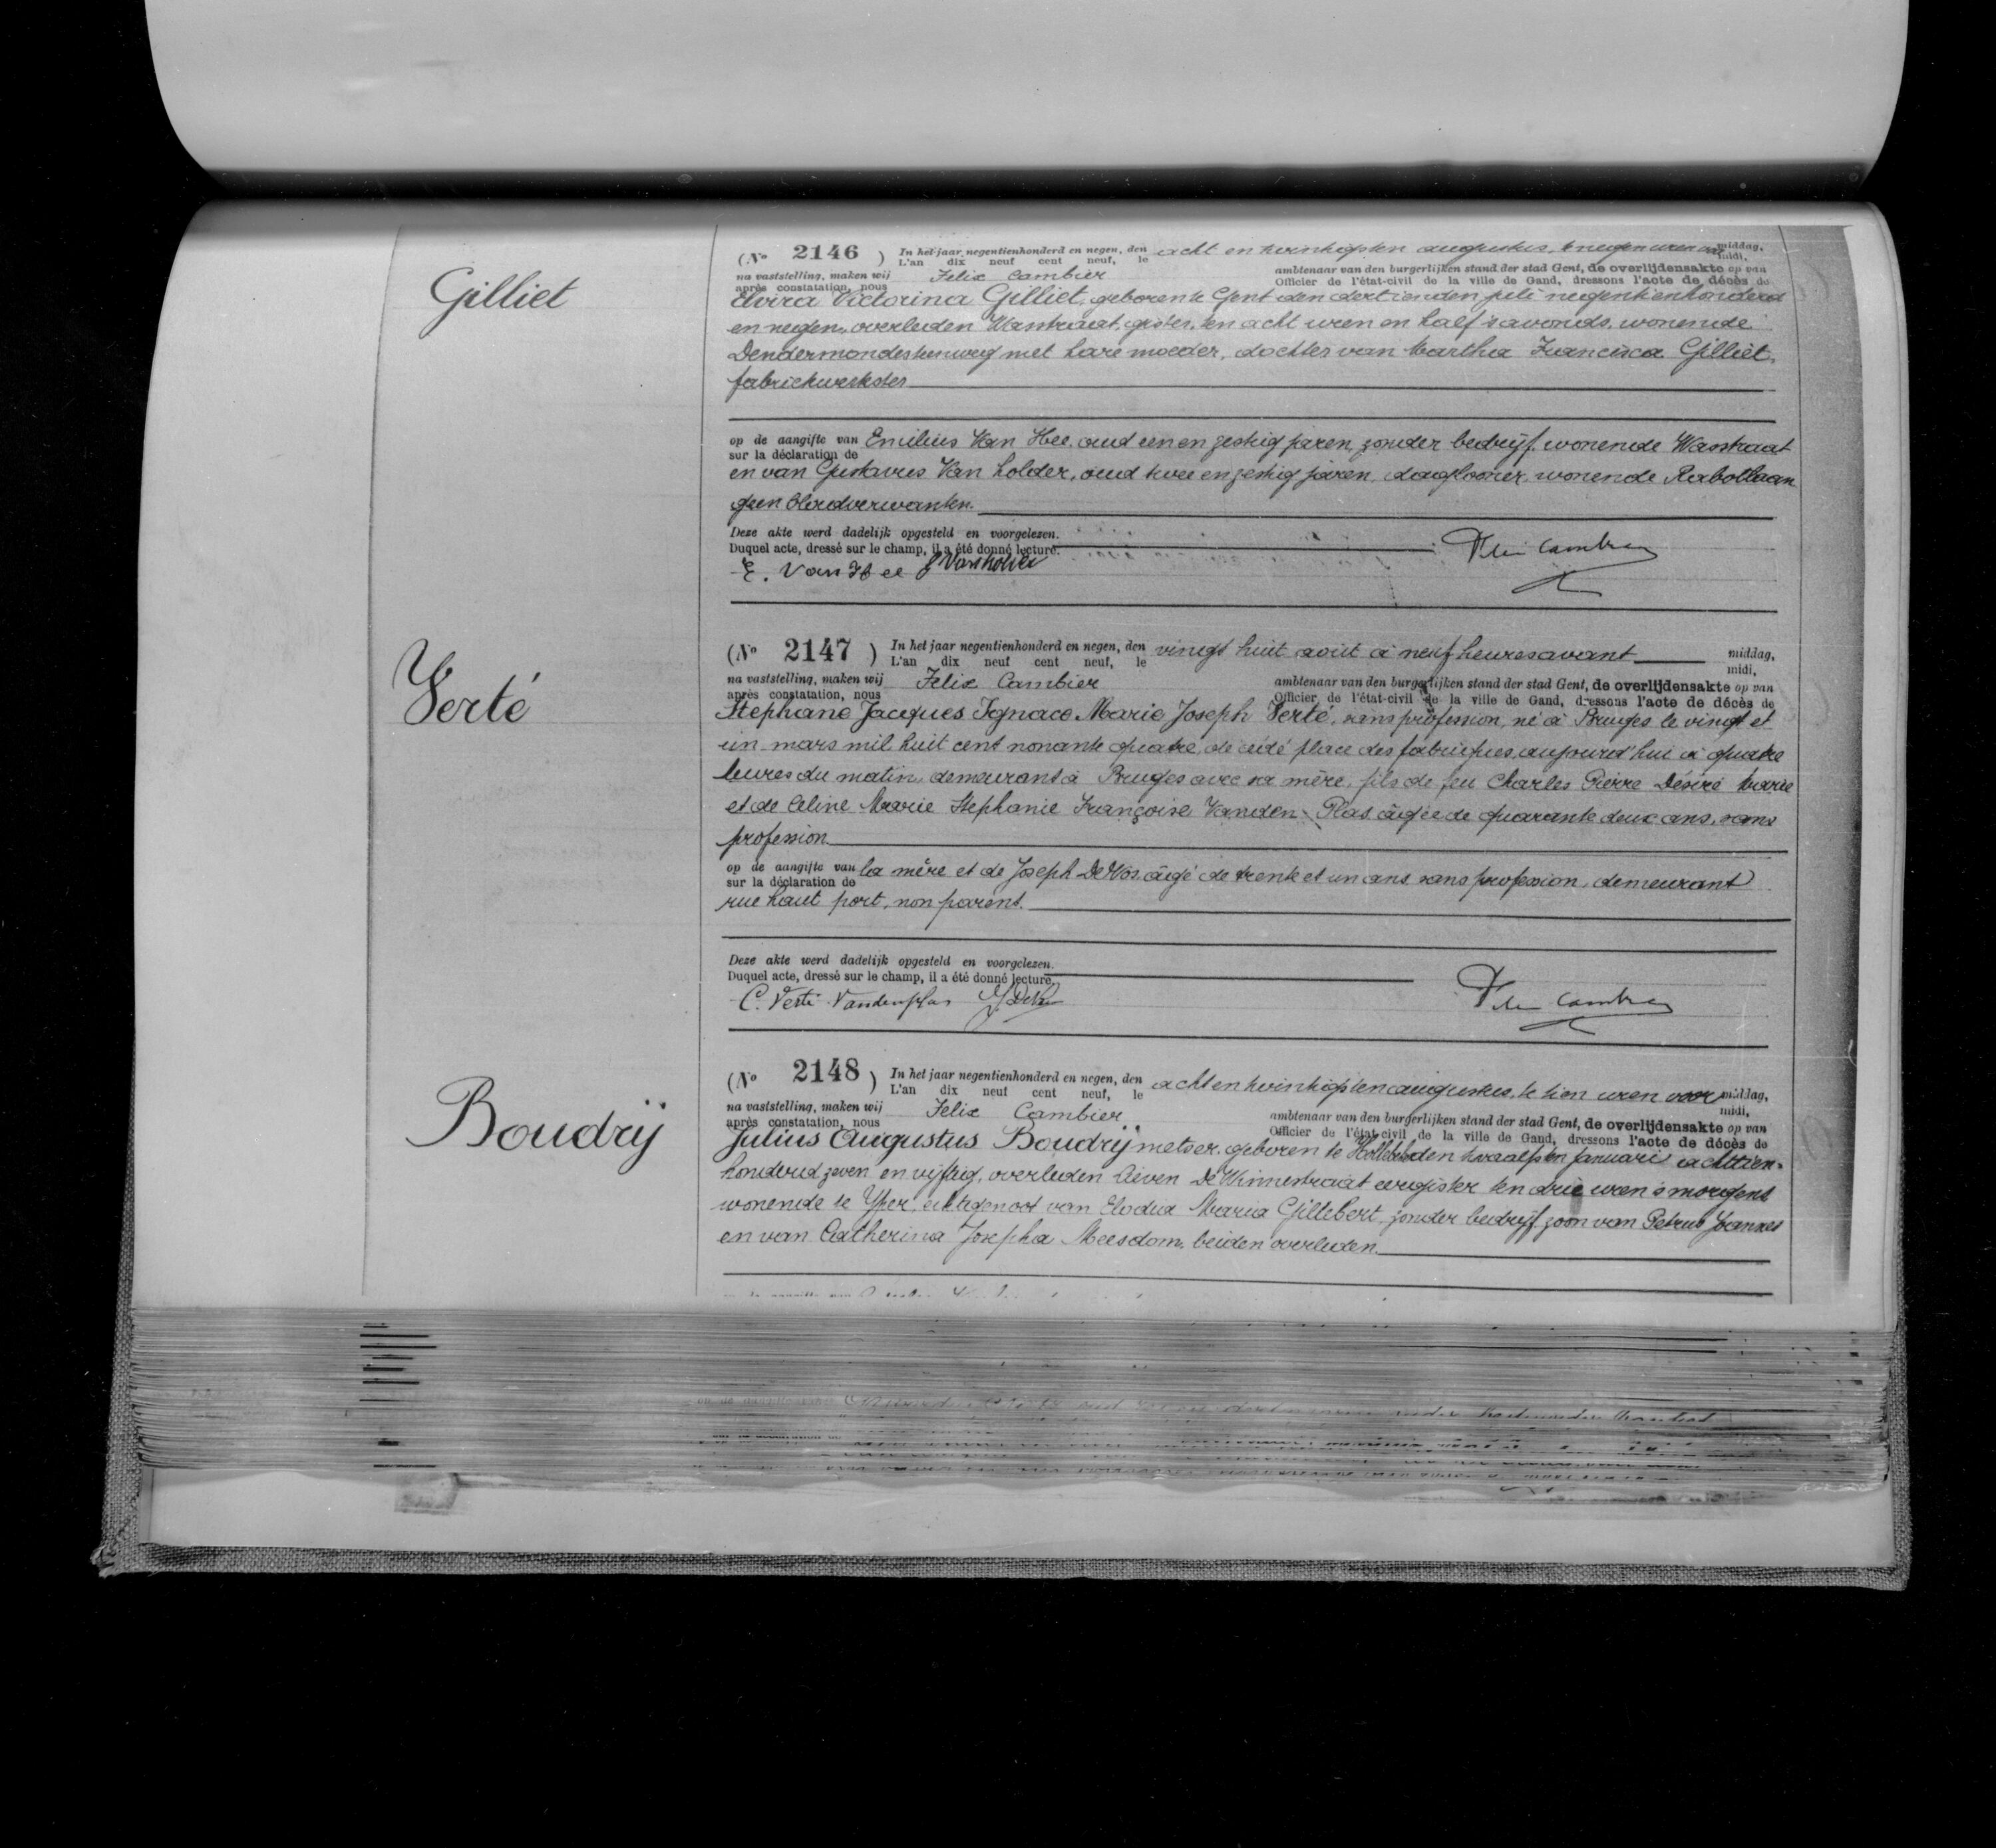 Gilliet
(No 2146) In het jaar negentienhonderd en negen, den acht en twintigsten augustus, te negen uren voor middag,
L'an dix neuf cent neuf, le midi,
na vaststelling, maken wij Felix Cambier ambtenaar van den burgerlijken stand der stad Gent, de overlijdensakte op van
après constatation, nous Officier de l'état-civil de la ville de Gand, dressons l'acte de décès de
Elvira Victorina Gilliet, geboren te Gent den dertienden juli negentienhonderd
en negen, overleden Wastraat, gister, ten acht uren en half 's avonds, wonende
Dendermondesteenweg met hare moeder, dochter van Martha Francisca Gilliet,
fabriekwerkster
op de aangifte van Emilius Van Hee, oud een en zestig jaren, zonder bedrijf, wonende Wastraat
sur la déclaration de
en van Gustavus Van holder, oud twee en zestig jaren, daglooner, wonende Rabotlaan
geen bloedverwanten.
Deze akte werd dadelijk opgesteld en voorgelezen.
Duquel acte, dressé sur le champ, il a été donné lecture.
E. Van Hee G Vanholder Felix Cambier
Verté
(No 2147) In het jaar negentienhonderd en negen, den vingt huit août à neuf heures avant middag,
L'an dix neuf cent neuf, le midi,
na vaststelling, maken wij Felix Cambier ambtenaar van den burgerlijken stand der stad Gent, de overlijdensakte op van
après constatation, nous Officier de l'état-civil de la ville de Gand, dressons l'acte de décès de
Stephane Jacques Ignace Marie Joseph Verté, sans profession, né à Bruges le vingt et
un mars mil huit cent nonante quatre, décédé place des fabriques, aujourd'hui à quatre
heures du matin, demeurant à Bruges avec sa mère, fils de feu Charles Pierre Désiré Marie
et de Celine Marie Stephanie Françoise Vanden Plas âgée de quarante deux ans, sans
profession
op de aangifte van la mère et de Joseph De Vos, âgé de trente et un ans, sans profession, demeurant
sur la déclaration de
rue haut port, non parent.
Deze akte werd dadelijk opgesteld en voorgelezen.
Duquel acte, dressé sur le champ, il a été donné lecture.
C. Verté Vandenplas J. De Vos Felix Cambier
Boudrij
(No 2148) In het jaar negentienhonderd en negen, den acht en twintigsten augustus, te tien uren voor middag,
L'an dix neuf cent neuf, le midi,
na vaststelling, maken wij Felix Cambier ambtenaar van den burgerlijken stand der stad Gent, de overlijdensakte op van
après constatation, nous Officier de l'état-civil de la ville de Gand, dressons l'acte de décès de
Julius Augustus Boudrij metser, geboren te Hollebeke den twaalfsten januari achttien-
honderd zeven en vijftig, overleden Lieven De Winnestraat eergister ten drie uren 's morgens
wonende te Yper, echtgenoot van Elodia Maria Gillebert, zonder bedrijf, zoon van Petrus Joannes
en van Catherina Josepha Meesdom, beiden overleden.